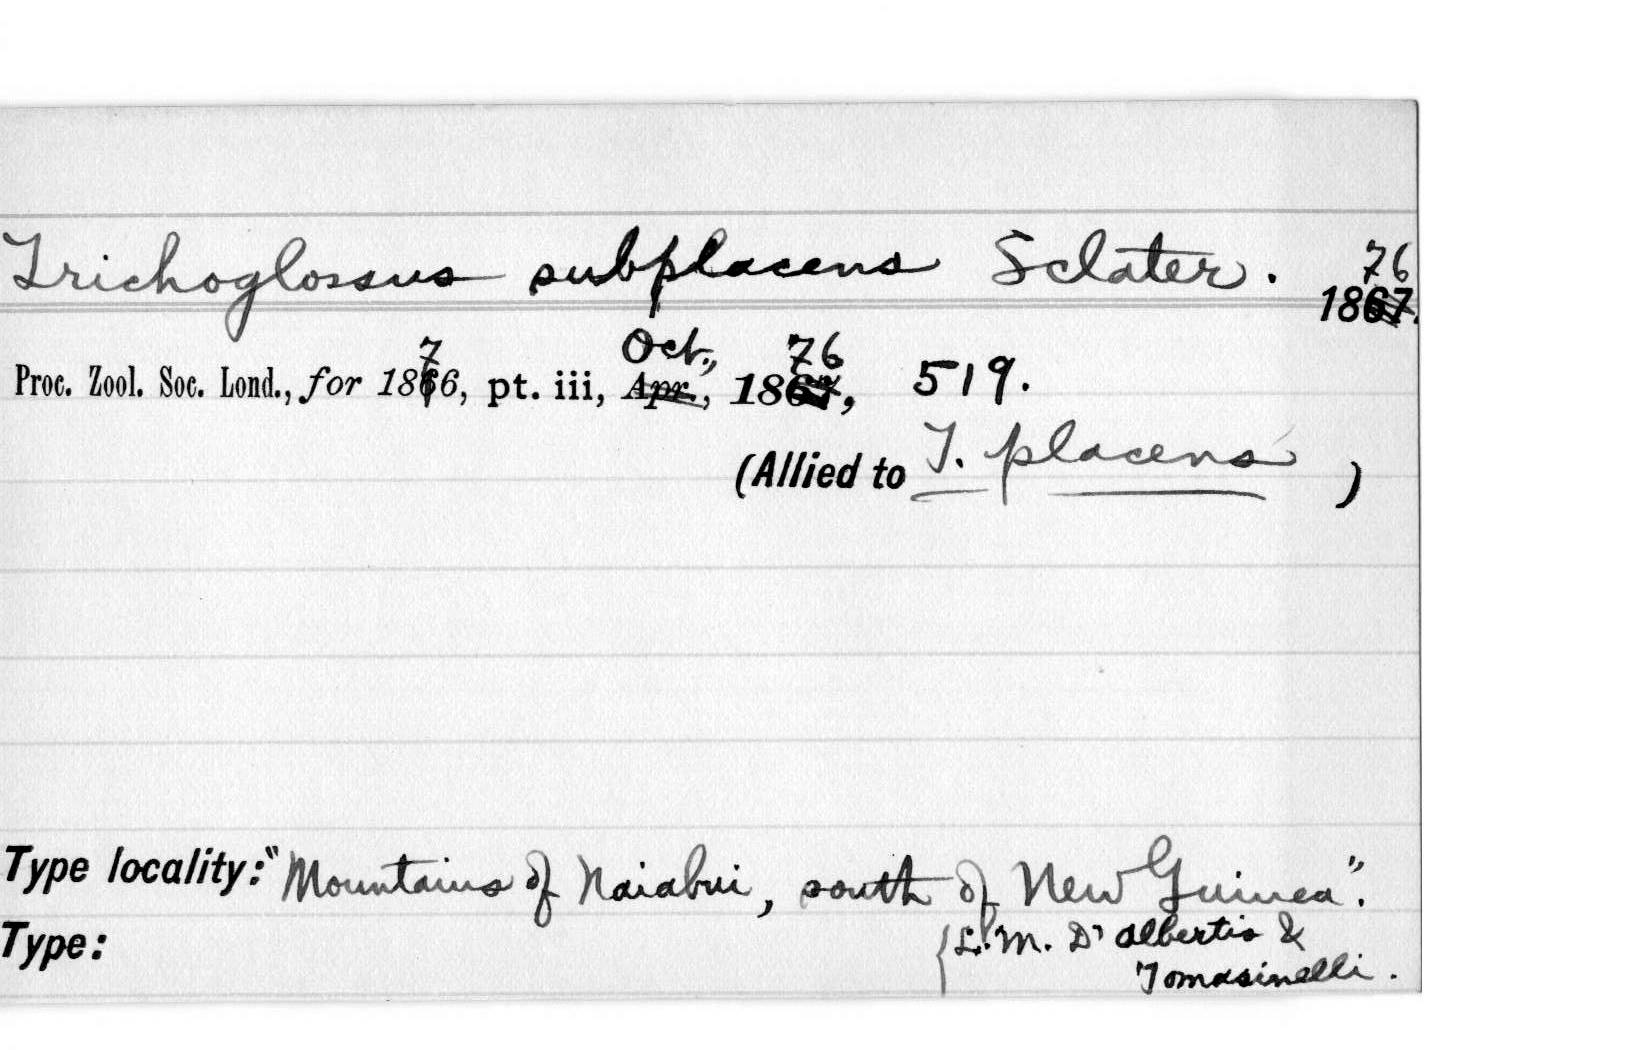 Trichoglossus subplacens Sclater. 1876.
Proc. Zool. Soc. Lond., for 1876, pt. iii, Oct., 1876, 519.
(Allied to T. placens )
Type locality: "Mountains of Naiabui, south of New Guinea".
Type: {L. M. D'Albertis &
Tomasinelli.